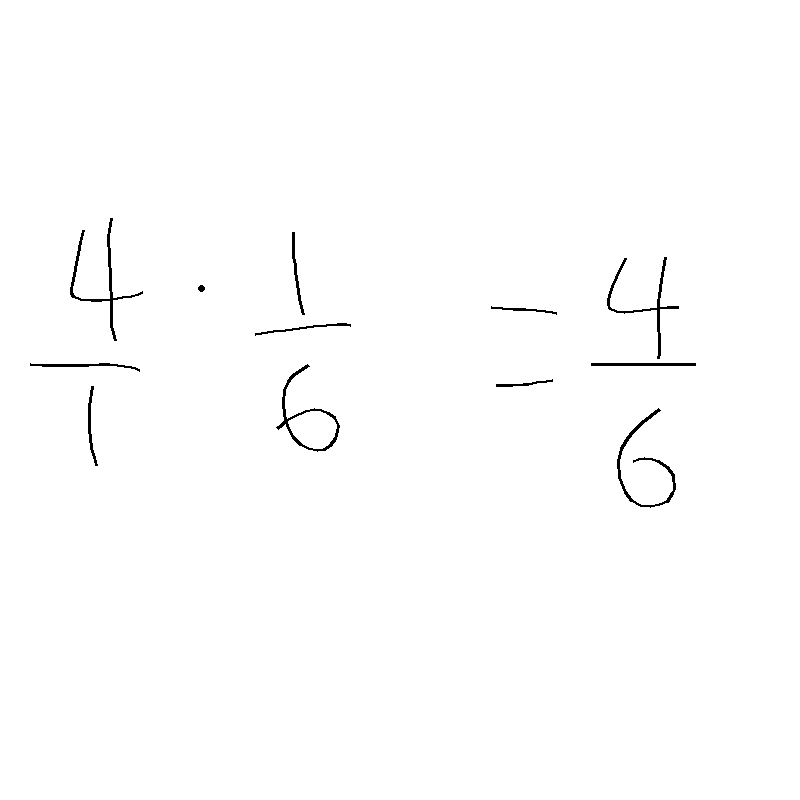 4/1 · 1/6 = 4/6